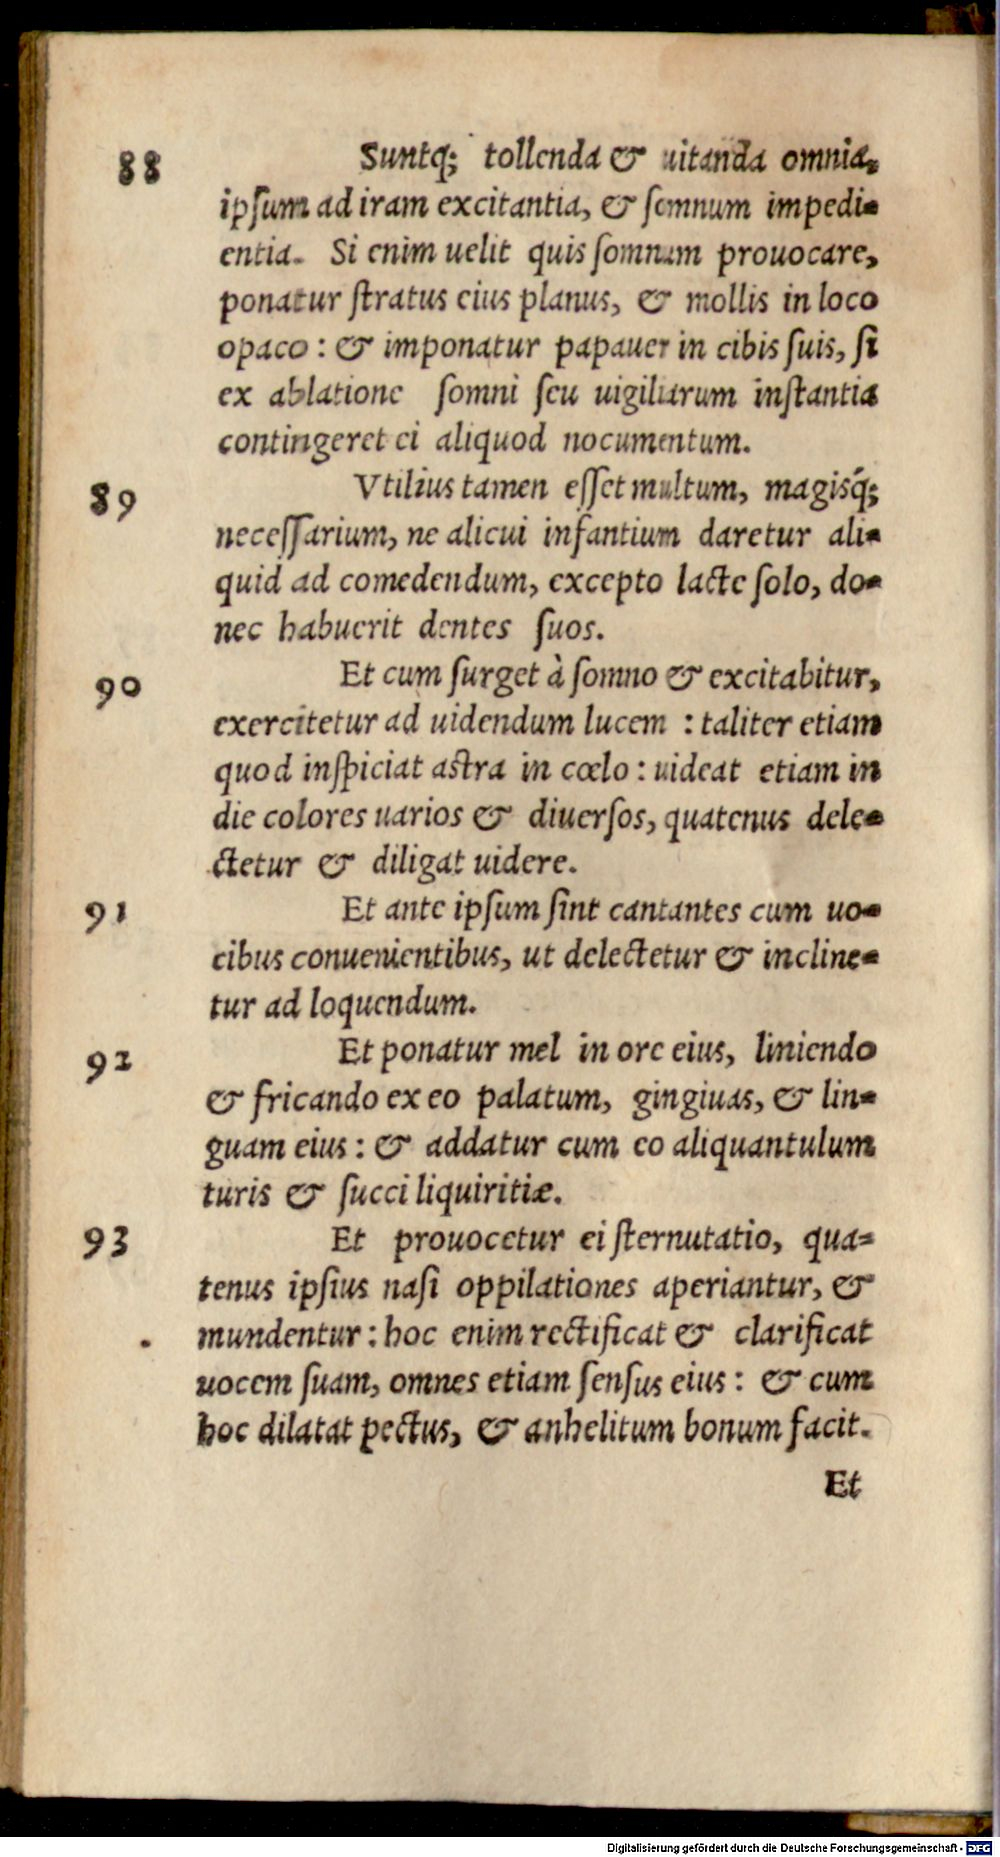 88 Suntq; tollenda & uitanda omnia,
ipſum ad iram excitantia, & ſomnum impedi-
entia. Si enim uelit quis ſomnum prouocare,
ponatur ſtratus eius planus, & mollis in loco
opaco: & imponatur papauer in cibis ſuis, ſi
ex ablatione ſomni ſeu uigiliarum inſtantia
contingeret ei aliquod nocumentum.
89 Vtilius tamen eſſet multum, magisq́;
neceſſarium, ne alicui infantium daretur ali-
quid ad comedendum, excepto lacte ſolo, do-
nec habuerit dentes ſuos.
90 Et cum ſurget à ſomno & excitabitur,
exercitetur ad uidendum lucem : taliter etiam
quod inſpiciat astra in cœlo : uideat etiam in
die colores uarios & diuerſos, quatenus dele-
ctetur & diligat uidere.
91 Et ante ipſum ſint cantantes cum uo-
cibus conuenientibus, ut delectetur & incline-
tur ad loquendum.
92 Et ponatur mel in ore eius, liniendo
& fricando ex eo palatum, gingiuas, & lin-
guam eius : & addatur cum eo aliquantulum
turis & ſucci liquiritiæ.
93 Et prouocetur ei ſternutatio, qua-
tenus ipſius naſi oppilationes aperiantur, &
mundentur : hoc enim rectificat & clarificat
uocem ſuam, omnes etiam ſenſus eius : & cum
hoc dilatat pectus, & anhelitum bonum facit.
Et
Digitalisierung gefördert durch die Deutsche Forschungsgemeinschaft - DFG